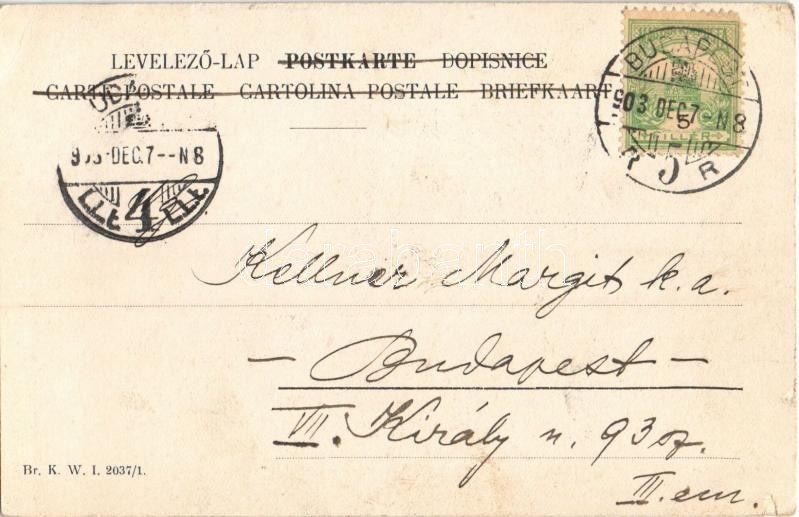 LEVELEZŐ-LAP POSTKARTE DOPISNICE
CARTE POSTALE CARTOLINA POSTALE BRIEFKAART
BUDAP
903 DEC.7 N8
5
FILLER
R 5 R
903 DEC.7--N8
4
Kellner Margit k.a.
— Budapest —
VII. Király u. 93 sz.
III. em.
Br. K. W. I. 2037/1.